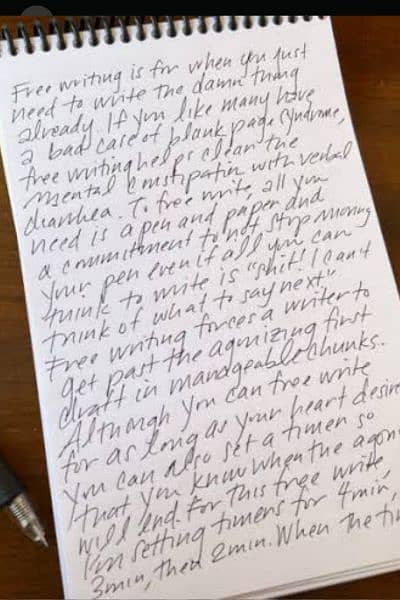 Free writing is for when you just
need to write the damn thing
already. If you like many have
a bad case of blank page syndrome,
free writing helps clean the
mental constipation with verbal
diarrhea. To free write, all you
need is a pen and paper and
a commitment to not stop moving
your pen even if all you can
think to write is "shit! I can't
think of what to say next"
Free writing forces a writer to
get past the agonizing first
draft in manageable chunks.
Although you can free write
for as long as your heart desire
you can also set a timer so
that you know when the agon
will end. For this free write,
I'm setting timers for 4min,
3min, then 2min. When the ti